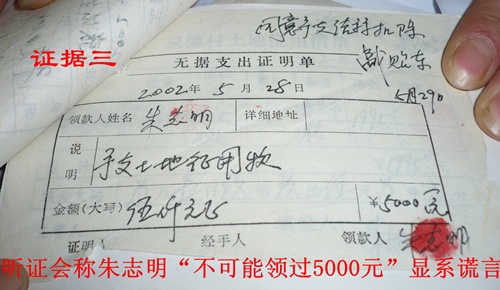 同意予支结算扣除
证据三
无据支出证明单
5月29日
2002年5月28日
领款人姓名 朱志明 详细地址
说明 予支土地征用款
金额(大写) 伍仟元正 ¥5000元
证明 经手人 领款人 朱志明
听证会称朱志明“不可能领过5000元”显系谎言